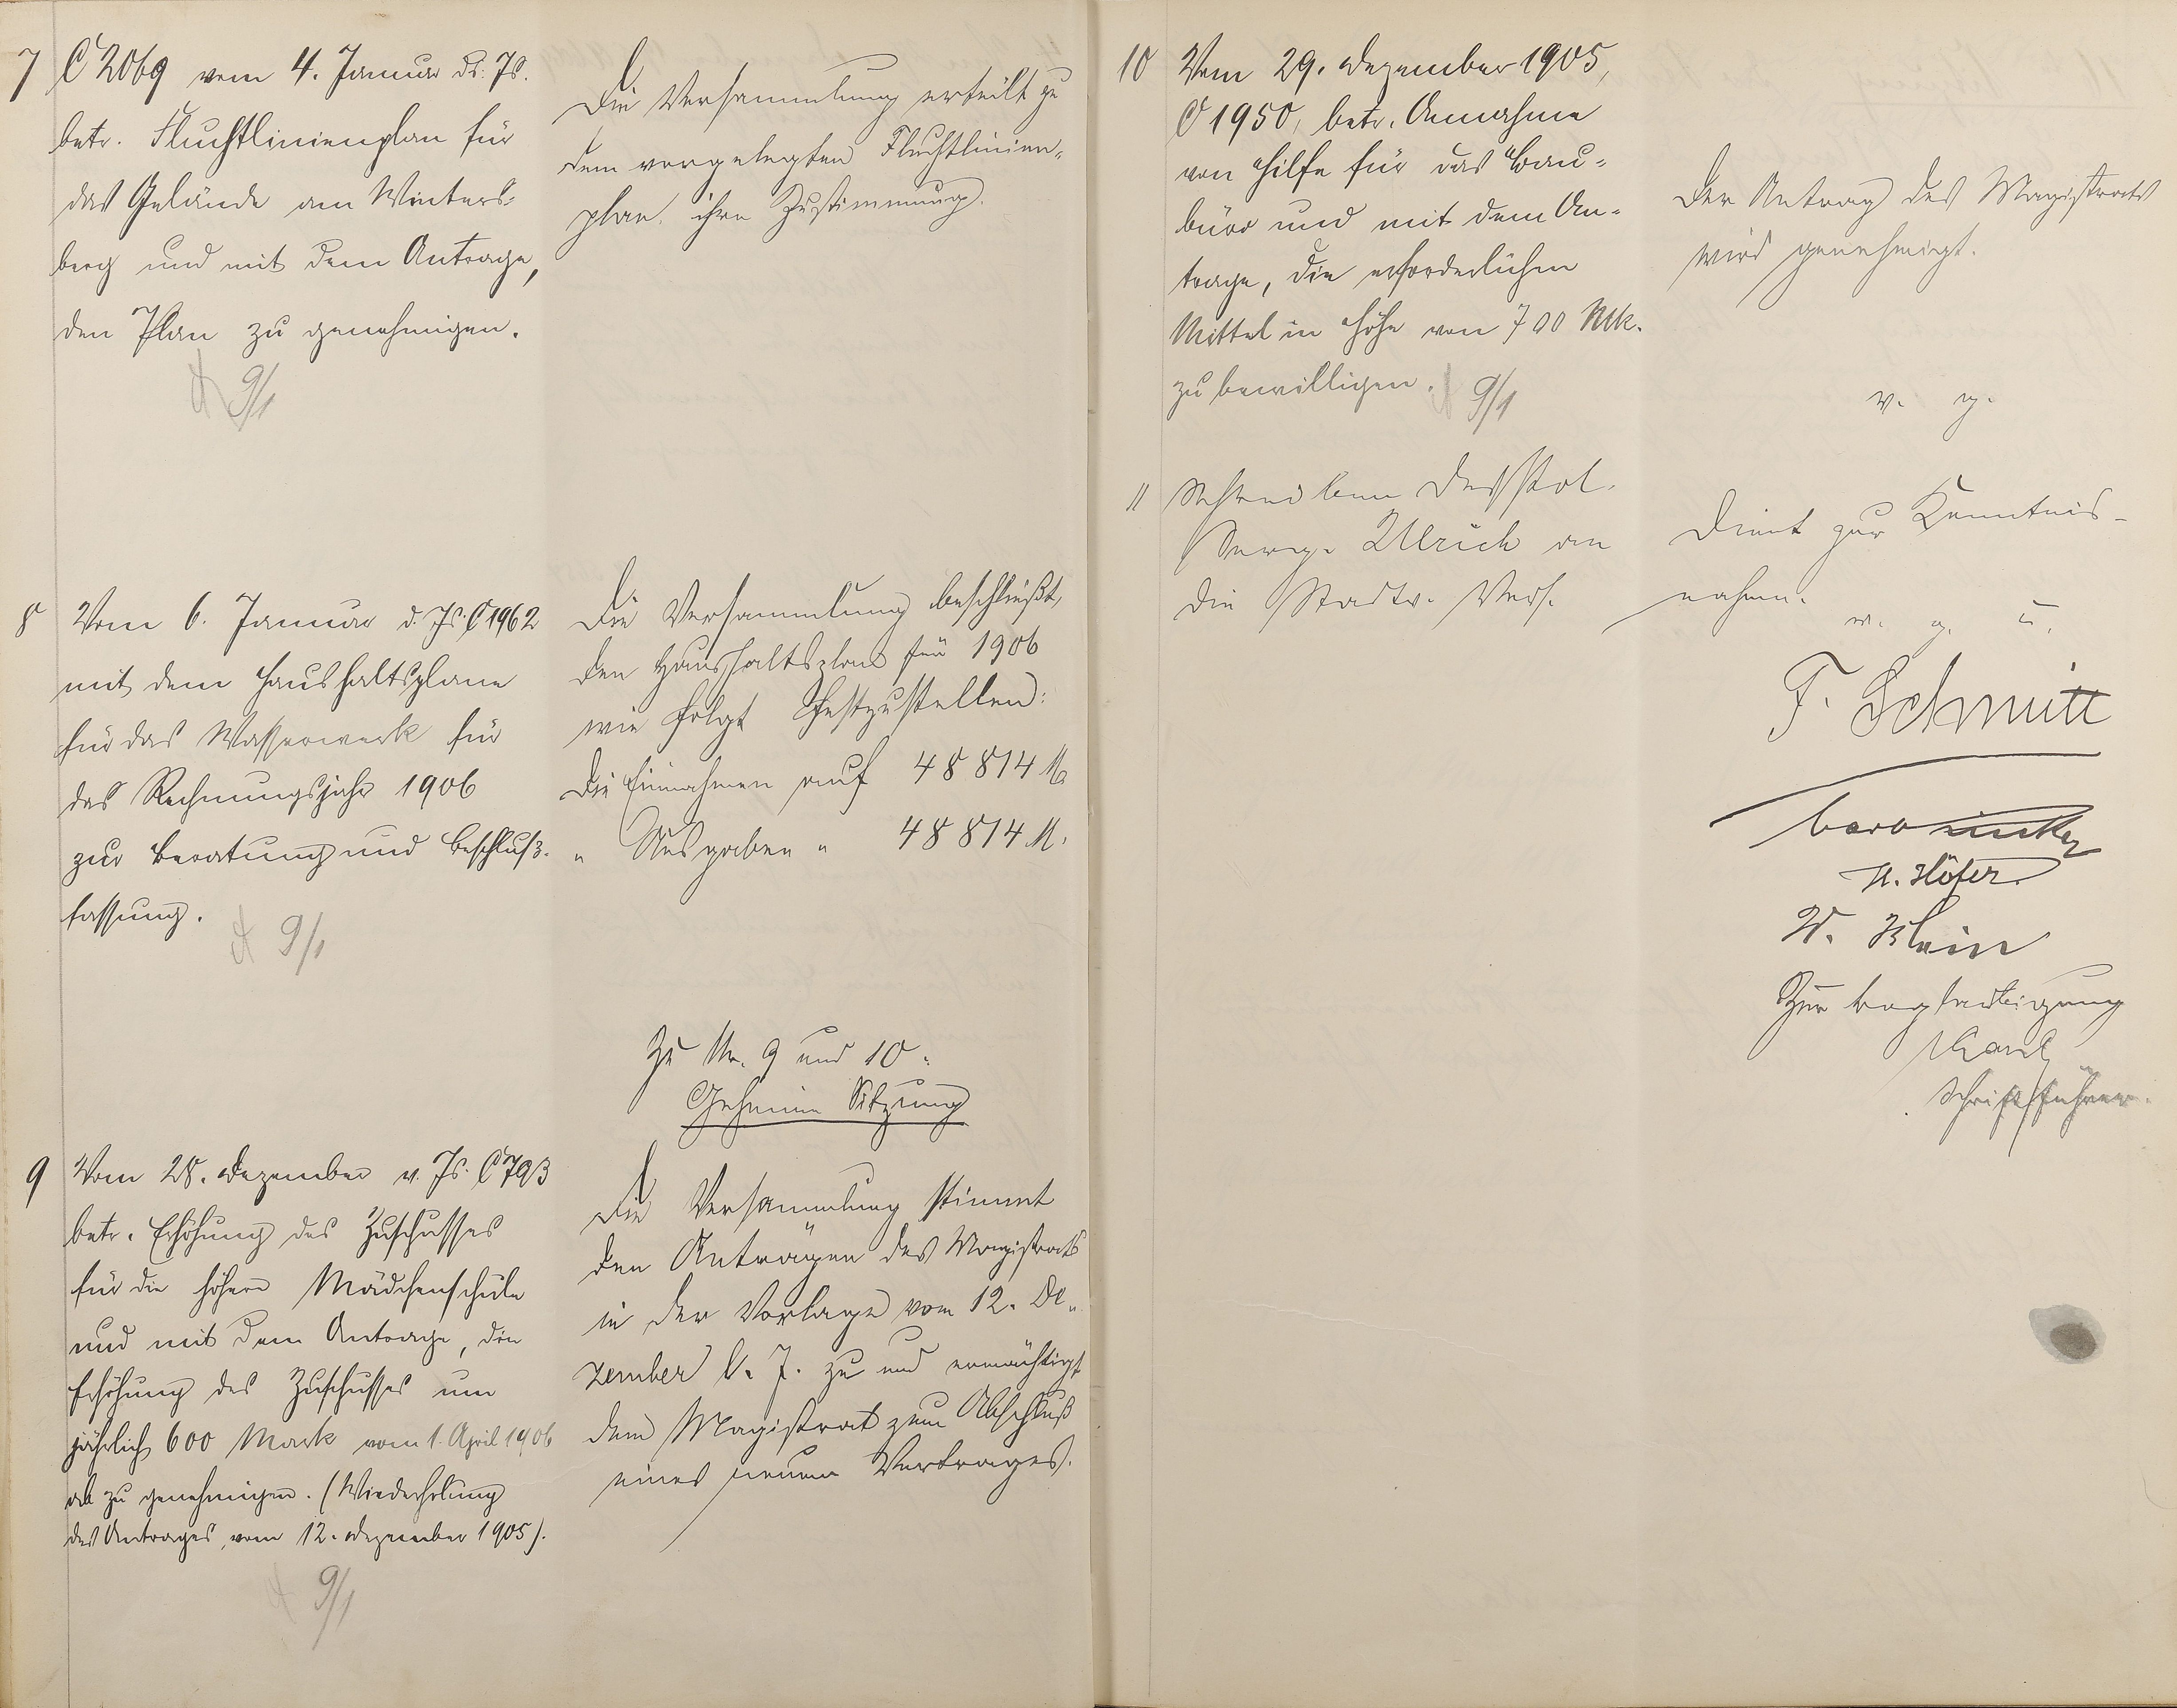 7 C 2069 vom 4. Januar ds. Js.
betr. Fluchtlinienplan für
das Gelände am Winters-
berg und mit dem Antrage,
den Plan zu genehmigen.
9/1
Die Versammlung erteilt zu
dem vorgelegten Fluchtlinien-
plan ihre Zustimmung.
8 Vom 6. Januar d. Js. C 1962
mit dem Haushaltsplane
für das Wasserwerk für
das Rechnungsjahr 1906
zur Beratung und Beschluß-
fassung.
9/1
Die Versammlung beschließt,
den Haushaltsplan für 1906
wie folgt festzustellen:
Die Einnahmen auf 48 814 M.
" Ausgaben " 48 814 M.
Zu Nr. 9 und 10:
Geheime Sitzung
9 Vom 28. Dezember v. Js. C 793
betr. Erhöhung des Zuschusses
für die höhere Mädchenschule
und mit dem Antrage, die
Erhöhung des Zuschusses um
jährlich 600 Mark vom 1. April 1906
ab zu genehmigen. (Wiederholung
des Antrages, vom 12. Dezember 1905).
9/1
Die Versammlung stimmt
den Anträgen des Magistrats
in der Vorlage vom 12. De-
zember v. J. zu und ermächtigt
den Magistrat zum Abschluß
eines neuen Vertrages.
10 Vom 29. Dezember 1905,
C 1950, betr. Annahme
von Hilfe für das Bau-
büro und mit dem An-
trage, die erforderlichen
Mittel in Höhe von 700 Mk.
zu bewilligen.
9/1
Der Antrag des Magistrats
wird genehmigt.
v. g.
11 Schreiben des Pol.
Serg. Ulrich an
die Stadtv. Vers.
Dient zur Kenntnis-
nahme.
v. g. u.
F. Schmitt
H. Höfer
W. Klein
Zur Beglaubigung
Schriftführer.